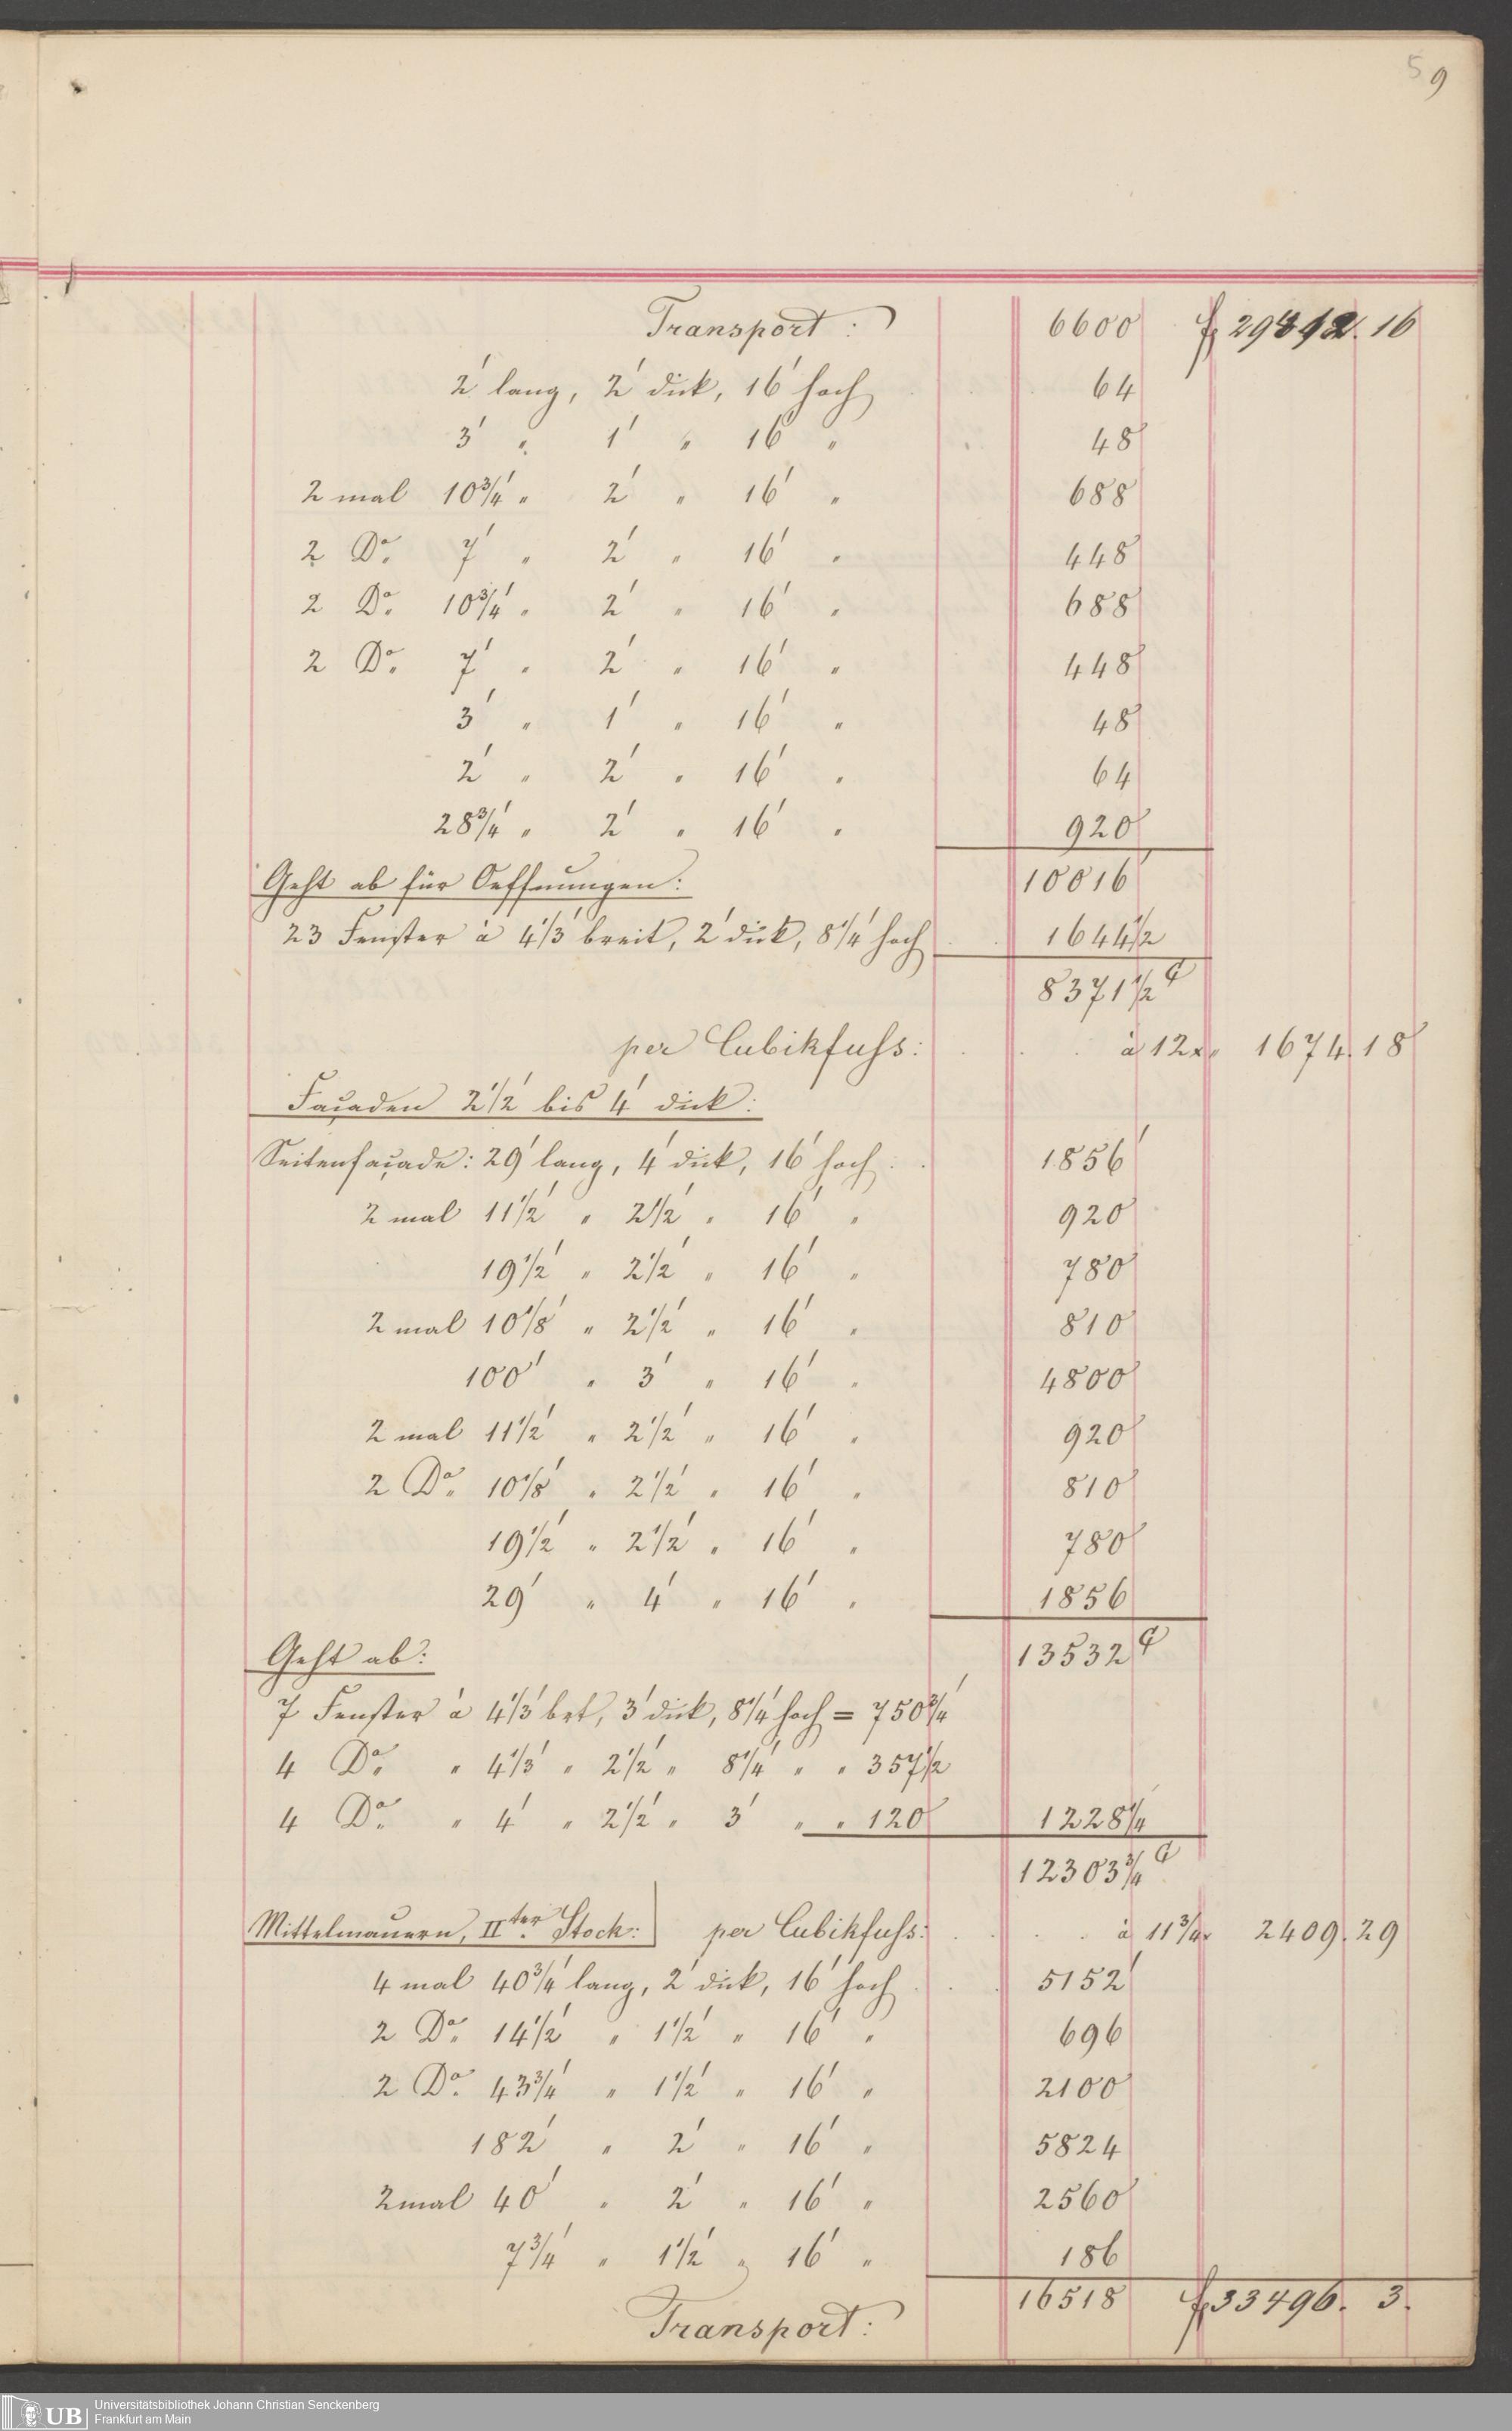 5 9
Transport: 6600 f 29412. 16
2' lang, 2' dick, 16' hoch 64
3' " 1' " 16' " 48
2 mal 10¾' " 2' " 16' " 688
2 Do. 7' " 2' " 16' " 448
2 Do. 10¾' " 2' " 16' " 688
2 Do. 7' " 2' " 16' " 448
3' " 1' " 16' " 48
2' " 2' " 16' " 64
28¾' " 2' " 16' " 920
Geht ab für Oeffnungen: 10016'
23 Fenster à 4⅓' breit, 2' dick, 8¼' hoch 1644½
8371½ C'
per Cubikfuss: à 12x " 1674. 18
Façaden 2½' bis 4' dick:
Seitenfaçade: 29' lang, 4' dick, 16' hoch: 1856'
2 mal 11½' " 2½' " 16' " 920
19½' " 2½' " 16' " 780
2 mal 10⅛' " 2½' " 16' " 810
100' " 3' " 16' " 4800
2 mal 11½' " 2½' " 16' " 920
2 Do. 10⅛' " 2½' " 16' " 810
19½' " 2½' " 16' " 780
29' " 4' " 16' " 1856
Geht ab: 13532 C'
7 Fenster à 4⅓' brt, 3' dick, 8¼' hoch = 750¾'
4 Do. " 4⅓' " 2½' " 8¼' " " 357½
4 Do. " 4' " 2½' " 3' " " 120 1228¼
12303¾ C'
Mittelmauern, IIter Stock: per Cubikfuss: à 11¾x 2409. 29
4 mal 40¾' lang, 2' dick, 16' hoch 5152'
2 Do. 14½' " 1½' " 16' " 696
2 Do. 43¾' " 1½' " 16' " 2100
182' " 2' " 16' " 5824
2 mal 40' " 2' " 16' " 2560
7¾' " 1½' " 16' " 186
Transport: 16518 f 33496. 3.
UB Universitätsbibliothek Johann Christian Senckenberg
Frankfurt am Main